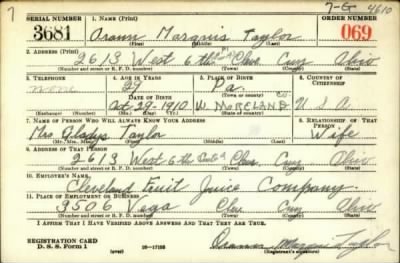 7-G 4610
SERIAL NUMBER 1. NAME (Print) ORDER NUMBER
3681 Orann Marquis Taylor 069
(First) (Middle) (Last)
2. ADDRESS (Print)
2613 West 6th Cleve. Cuy Ohio
(Number and street or R. F. D. number) (Town) (County) (State)
3. TELEPHONE 4. AGE IN YEARS 5. PLACE OF BIRTH 6. COUNTRY OF CITIZENSHIP
none 29 Pa.
DATE OF BIRTH (Town or county)
Oct-29-1910 W MORELAND CO U.S.A.
(Exchange) (Number) (Mo.) (Day) (Yr.) (State or country)
7. NAME OF PERSON WHO WILL ALWAYS KNOW YOUR ADDRESS 8. RELATIONSHIP OF THAT PERSON
Mrs Gladys Taylor Wife
(Mr., Mrs., Miss) (First) (Middle) (Last)
9. ADDRESS OF THAT PERSON
2613 West 6th Cleve. Cuy Ohio
(Number and street or R. F. D. number) (Town) (County) (State)
10. EMPLOYER'S NAME
Cleveland Fruit Juice Company
11. PLACE OF EMPLOYMENT OR BUSINESS
3506 Vega Cleve Cuy Ohio
(Number and street or R. F. D. number) (Town) (County) (State)
I AFFIRM THAT I HAVE VERIFIED ABOVE ANSWERS AND THAT THEY ARE TRUE.
REGISTRATION CARD
D. S. S. Form 1 (over) 16—17105 Orann Marquis Taylor
(Registrant's signature)